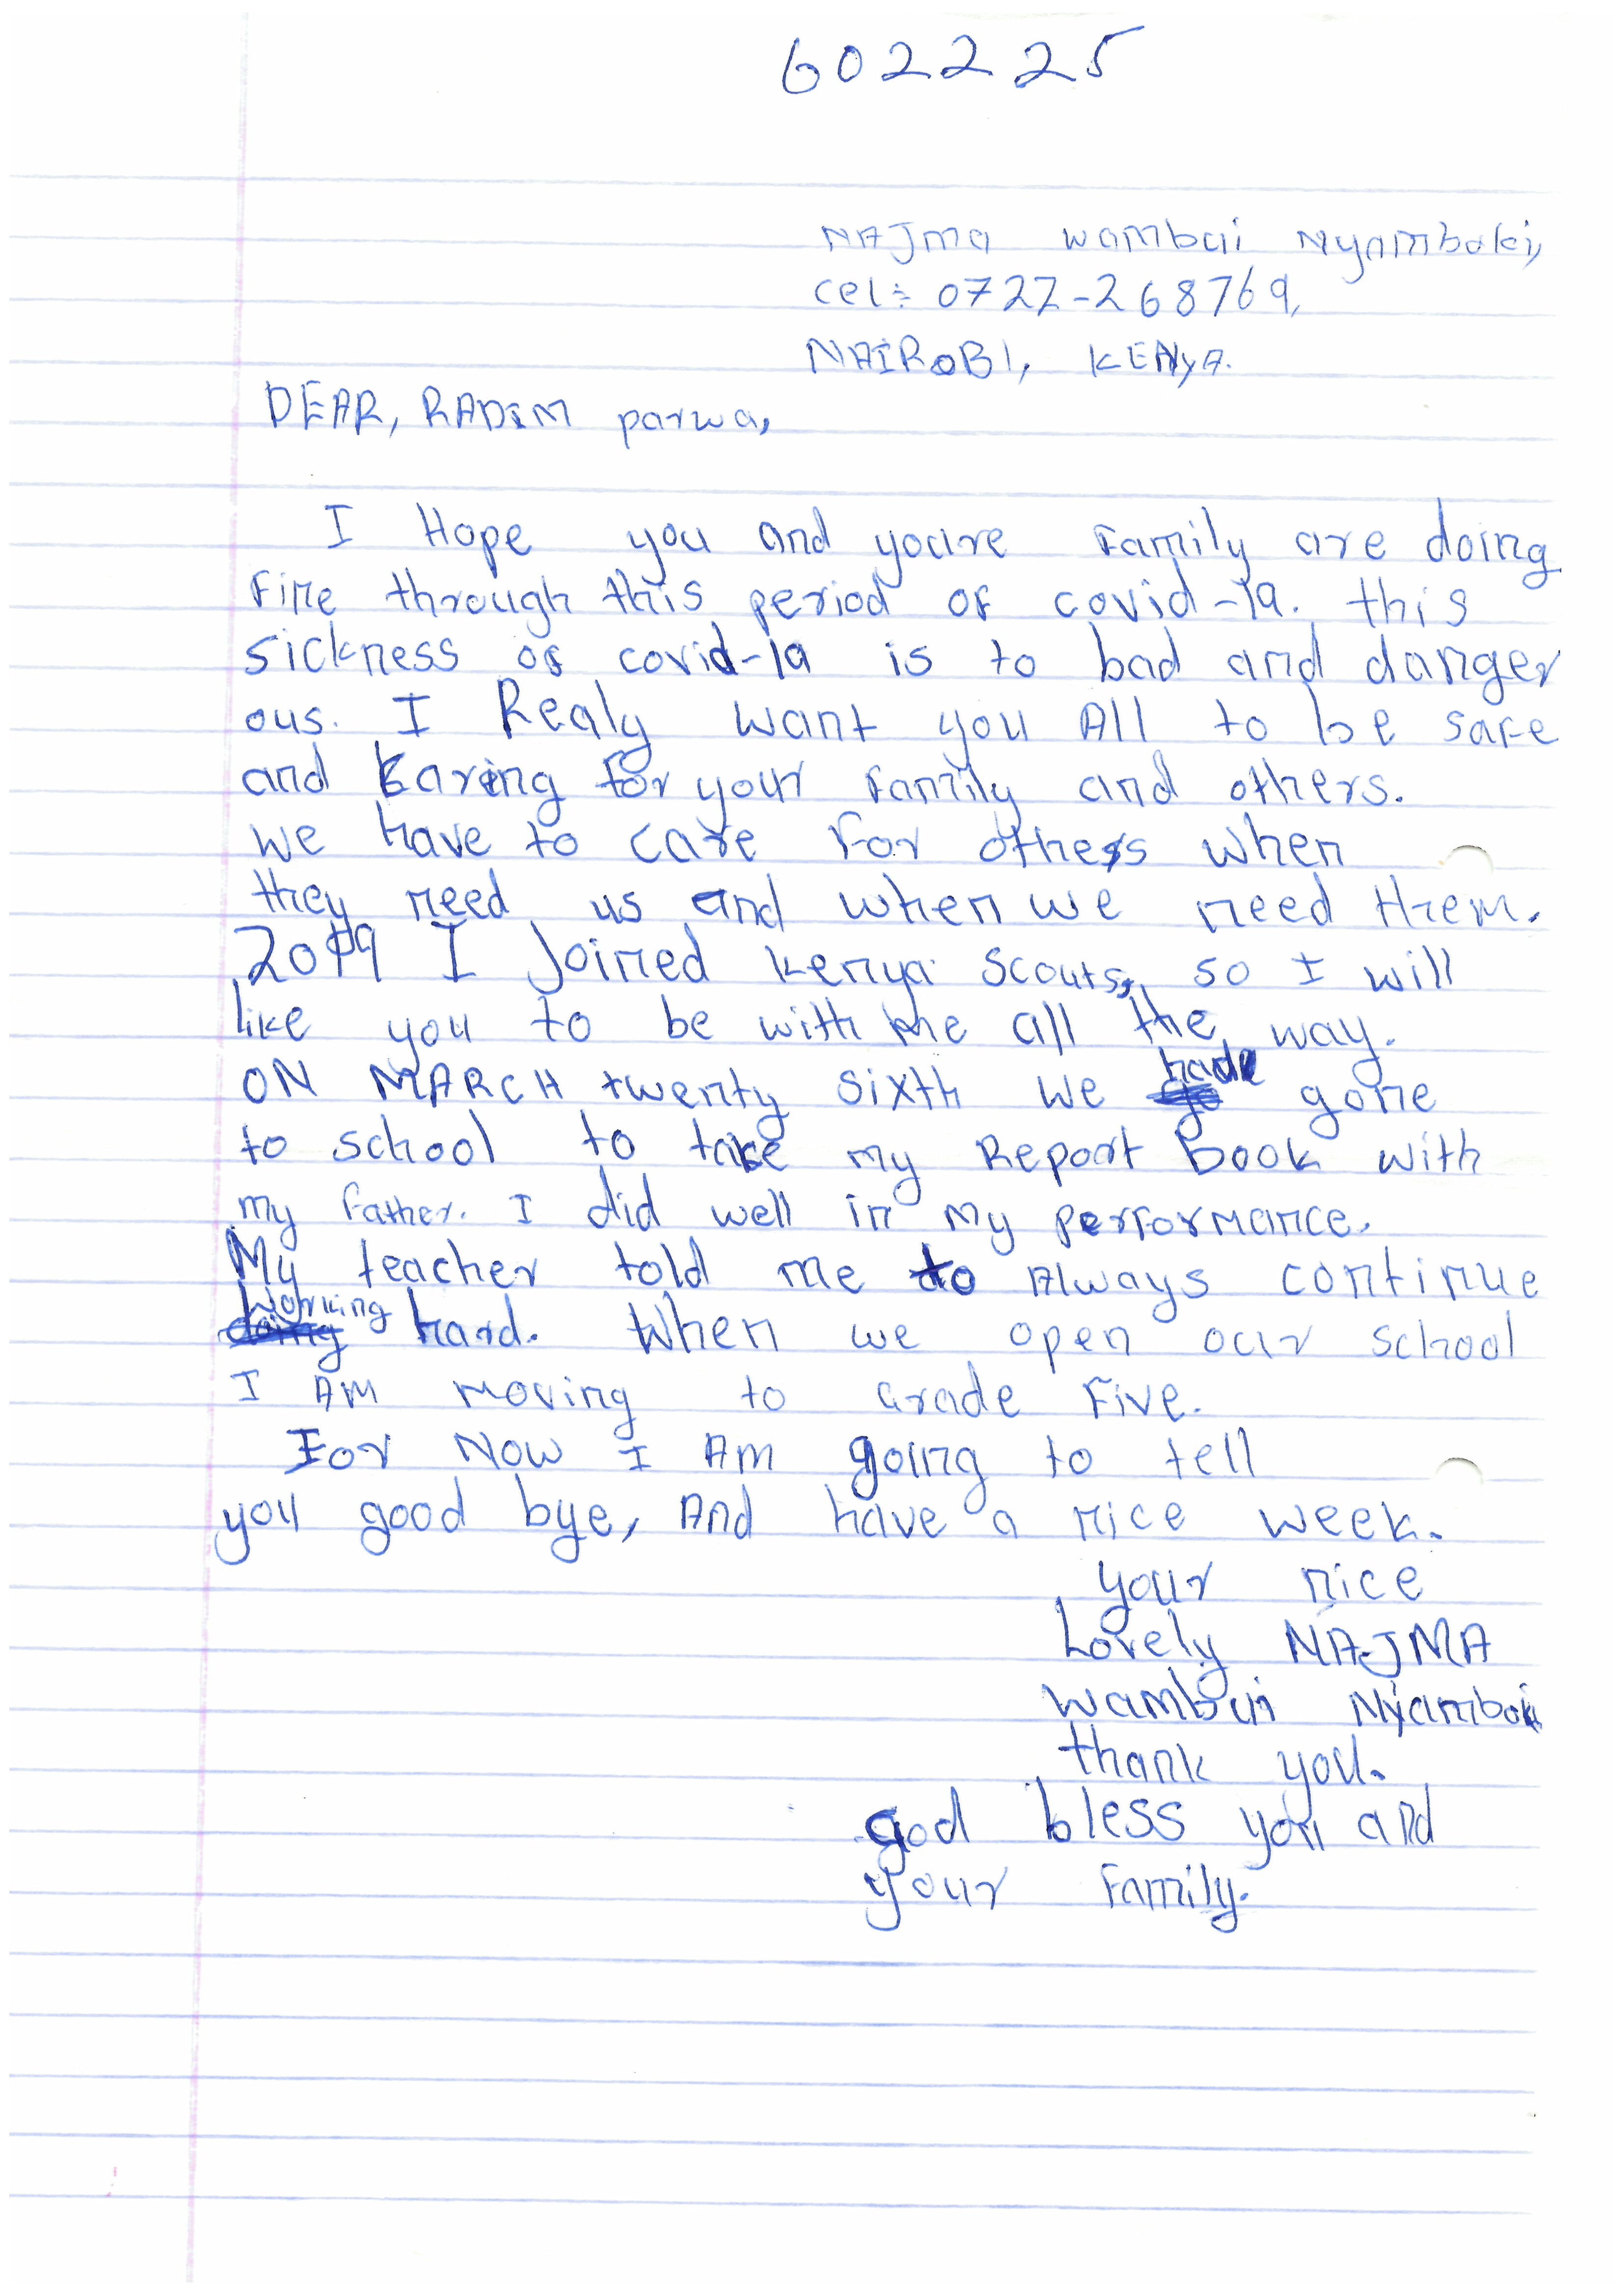 602225
NAJma wambui Nyamboki,
cel: 0722-268769,
NAIROBI, KENyA.
DEAR, RADIM parwa,
I Hope you and youre Family are doing
Fine through this period of covid-19. this
sickness of covid-19 is to bad and danger
ous. I Realy want you All to be safe
and karing for your Family and others.
we have to care For others when
they need us and when we need them.
2019 I Joined kenya scouts, so I will
like you to be with me all the way.
ON MARCH twenty sixth we hade gone
to school to take my Report book with
my father. I did well in my performance.
My teacher told me to Always continue
working hard. When we open our school
I AM moving to Grade Five.
For Now I AM going to tell
you good bye, And have a nice week.
your nice
Lovely NAJMA
wambui Nyamboki
thank you.
god bless you and
your Family.